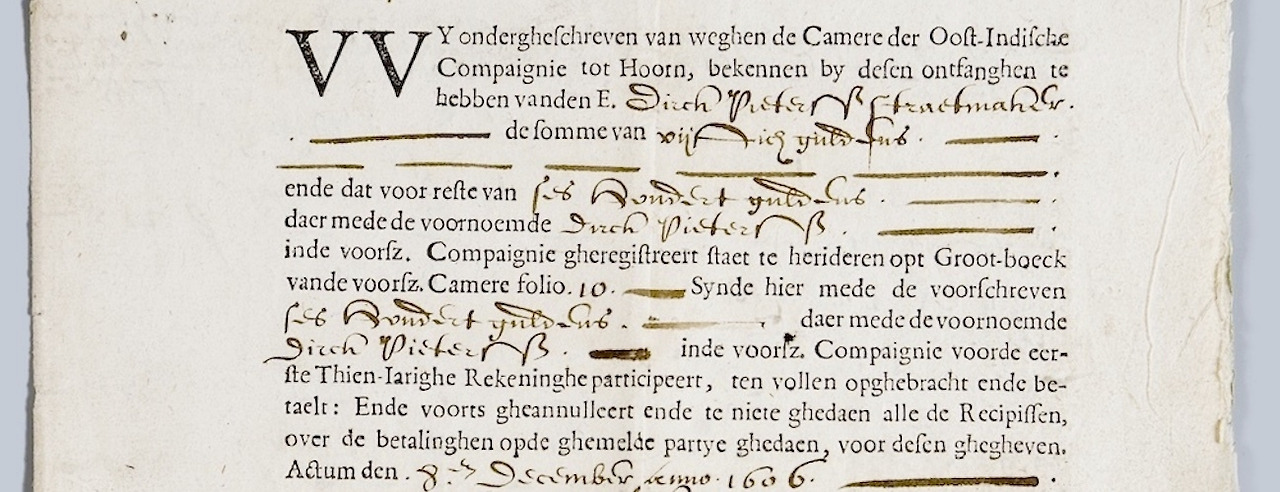 VVY ondergheschreven van weghen de Camere der Oost-Indische
Compaignie tot Hoorn, bekennen by desen ontfanghen te
hebben vanden E. Dirck Pieterssß straetmaker.
de somme van vijftich guldens.
ende dat voor reste van ses hondert guldens.
daer mede de voornoemde Dirck Pieterssß.
inde voorsz. Compaignie gheregistreert staet te herideren opt Groot-boeck
vande voorsz. Camere folio. 10. Synde hier mede de voorschreven
ses hondert guldens. daer mede de voornoemde
Dirck Pieterssß. inde voorsz. Compaignie voorde eer-
ste Thien-Iarighe Rekeninghe participeert, ten vollen opghebracht ende be-
taelt: Ende voorts gheannulleert ende te niete ghedaen alle de Recipissen,
over de betalinghen opde ghemelde partye ghedaen, voor desen ghegheven.
Actum den. 8.en December, anno. 1606.